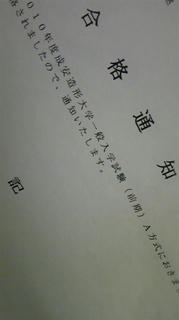 合格通知
2010年度成安造形大学一般入学試験（前期）A方式におきま
格されましたので、通知いたします。
記